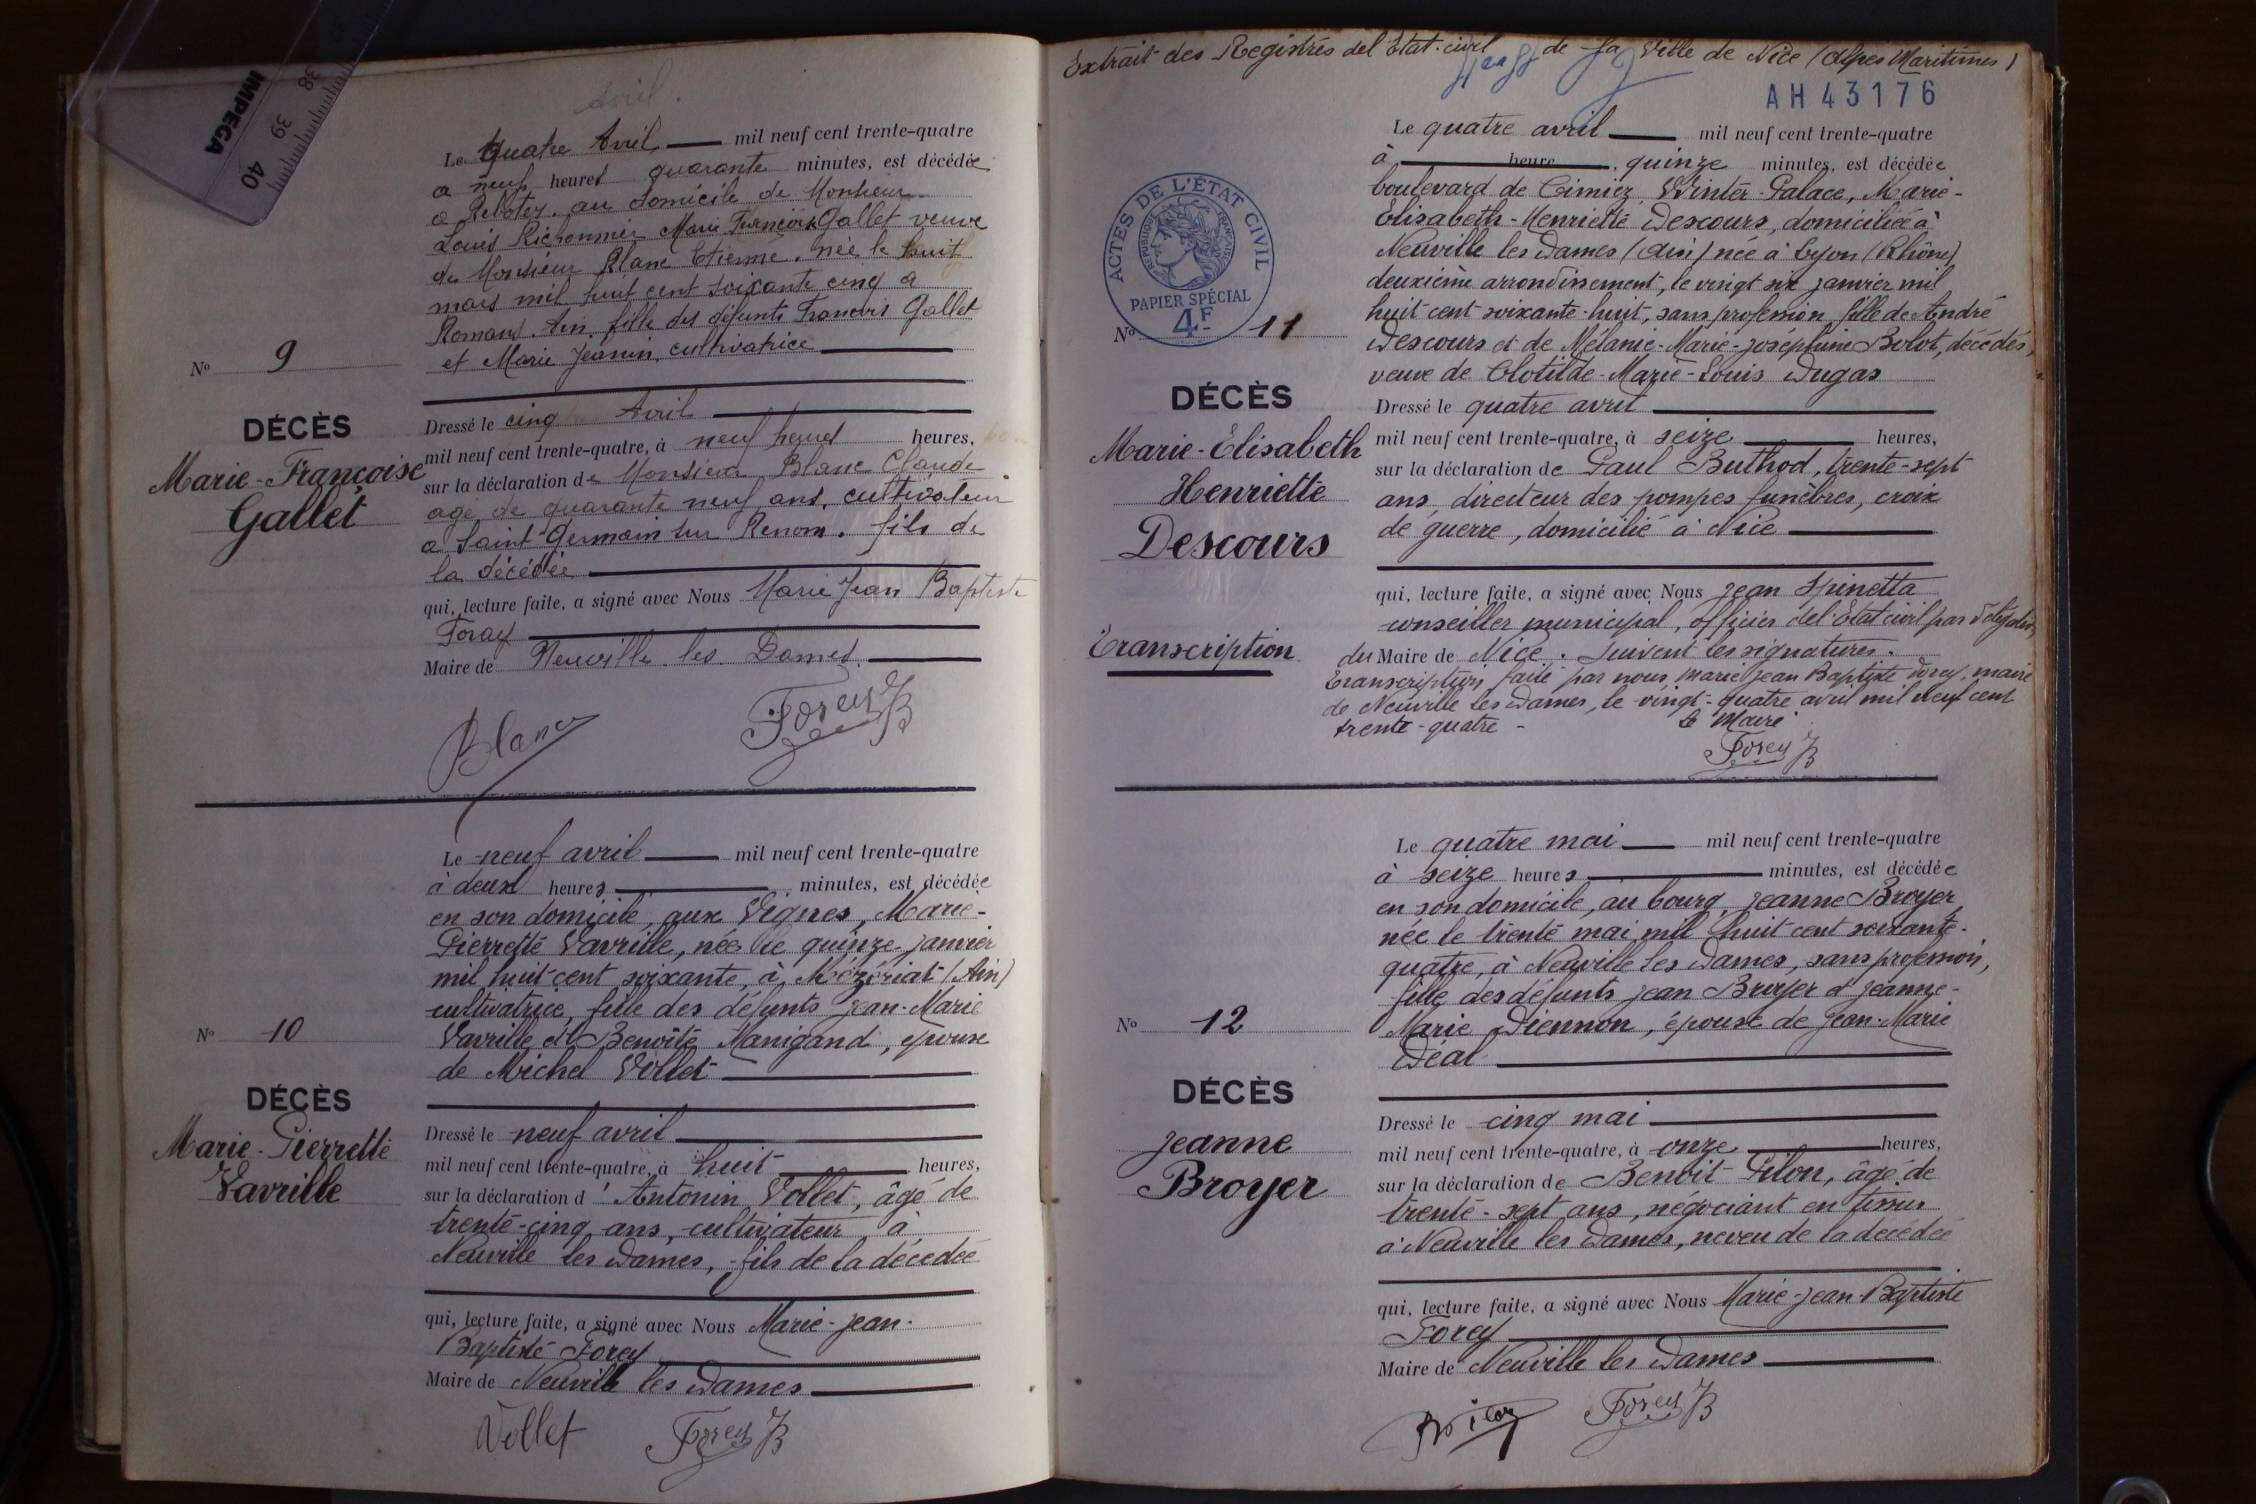 IMPEGA
38
39
40
Avril.
Le quatre Avril mil neuf cent trente-quatre
a neuf heures quarante minutes, est décédée
a Rebotey. au domicile de Monsieur
Louis Marie Françoise Gallet veuve
de Monsieur Blanc Etienne. née le huit
mars mil huit cent soixante cinq a
Romans. Ain. fille des défunts Francois Gallet
et Marie Jeanin. cultivatrice
No 9
DÉCÈS
Marie-Françoise
Gallet
Dressé le cinq Avril
mil neuf cent trente-quatre, à neuf heures heures,
sur la déclaration de Monsieur Blanc Claude
agé de quarante neuf ans. cultivateur
a Saint Germain sur Renom. fils de
la décédée
qui, lecture faite, a signé avec Nous Marie Jean Baptiste
Forey
Maire de Neuville les Dames.
Blanc Forey JB
Le neuf avril mil neuf cent trente-quatre
à deux heures minutes, est décédée
en son domicile, aux Vignes, Marie-
Pierrette Vavrille, née le quinze janvier
mil huit cent soixante, à Mézériat (Ain)
cultivatrice, fille des défunts Jean-Marie
Vavrille et Benoîte Manigand, épouse
de Michel Vollet
No 10
DÉCÈS
Marie-Pierrette
Vavrille
Dressé le neuf avril
mil neuf cent trente-quatre, à huit heures,
sur la déclaration d'Antonin Vollet, âgé de
trente-cinq ans, cultivateur à
Neuville les Dames, fils de la décédée
qui, lecture faite, a signé avec Nous Marie-Jean-
Baptiste Forey
Maire de Neuville les Dames
Vollet Forey JB
Extrait des Registres de l'Etat-civil de la Ville de Nice (Alpes Maritimes)
AH 43176
Le quatre avril mil neuf cent trente-quatre
à heure quinze minutes, est décédée
boulevard de Cimiez, Winter-Palace, Marie-
Elisabeth-Henriette Descours, domiciliée à
Neuville les Dames (Ain) née à Lyon (Rhône)
deuxième arrondissement, le vingt six janvier mil
huit cent soixante-huit, sans profession, fille de André
Descours et de Mélanie-Marie-Joséphine Bolot, décédés,
veuve de Clotilde-Marie-Louis Dugas
ACTES DE L'ÉTAT CIVIL
RÉPUBLIQUE FRANÇAISE
PAPIER SPÉCIAL
4F
No 11
DÉCÈS
Marie-Elisabeth
Henriette
Descours
Transcription
Dressé le quatre avril
mil neuf cent trente-quatre, à seize heures,
sur la déclaration de Paul Buthod, trente-sept
ans, directeur des pompes funèbres, croix
de guerre, domicilié à Nice
qui, lecture faite, a signé avec Nous Jean Spinetta
conseiller municipal, officier de l'Etat civil par délégation
du Maire de Nice. Suivent les signatures.
Transcription faite par nous Marie Jean Baptiste Forey, maire
de Neuville les Dames, le vingt-quatre avril mil neuf cent
trente-quatre -
Le Maire
Forey JB
Le quatre mai mil neuf cent trente-quatre
à seize heures minutes, est décédée
en son domicile, au bourg, Jeanne Broyer
née le trente mai mil huit cent soixante-
quatre, à Neuville les Dames, sans profession,
fille des défunts Jean Broyer et Jeanne-
Marie Diennon, épouse de Jean-Marie
Déal
No 12
DÉCÈS
Jeanne
Broyer
Dressé le cinq mai
mil neuf cent trente-quatre, à onze heures,
sur la déclaration de Benoit Pilon, âgé de
trente-sept ans, négociant en tissus
à Neuville les Dames, neveu de la décédée
qui, lecture faite, a signé avec Nous Marie-Jean-Baptiste
Forey
Maire de Neuville les Dames
Forey JB